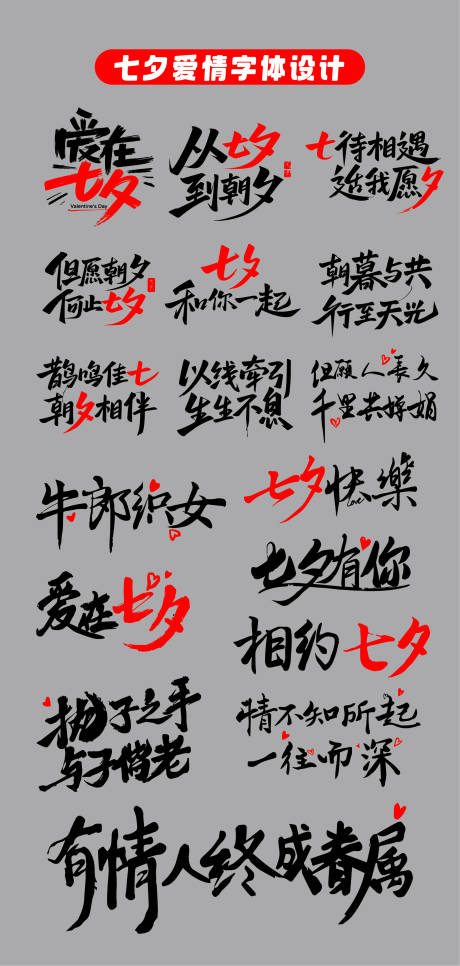 七夕爱情字体设计
爱在
七夕
Valentine's Day
从七夕
到朝夕
七待相遇
述我愿夕
但愿朝夕
何止七夕
七夕
和你一起
朝暮与共
行至天光
鹊鸣佳七
朝夕相伴
以线牵引
生生不息
但愿人长久
千里共婵娟
牛郎织女
七夕快樂
Love
七夕有你
爱在七夕
相约七夕
执子之手
与子偕老
情不知所起
一往而深
有情人终成眷属